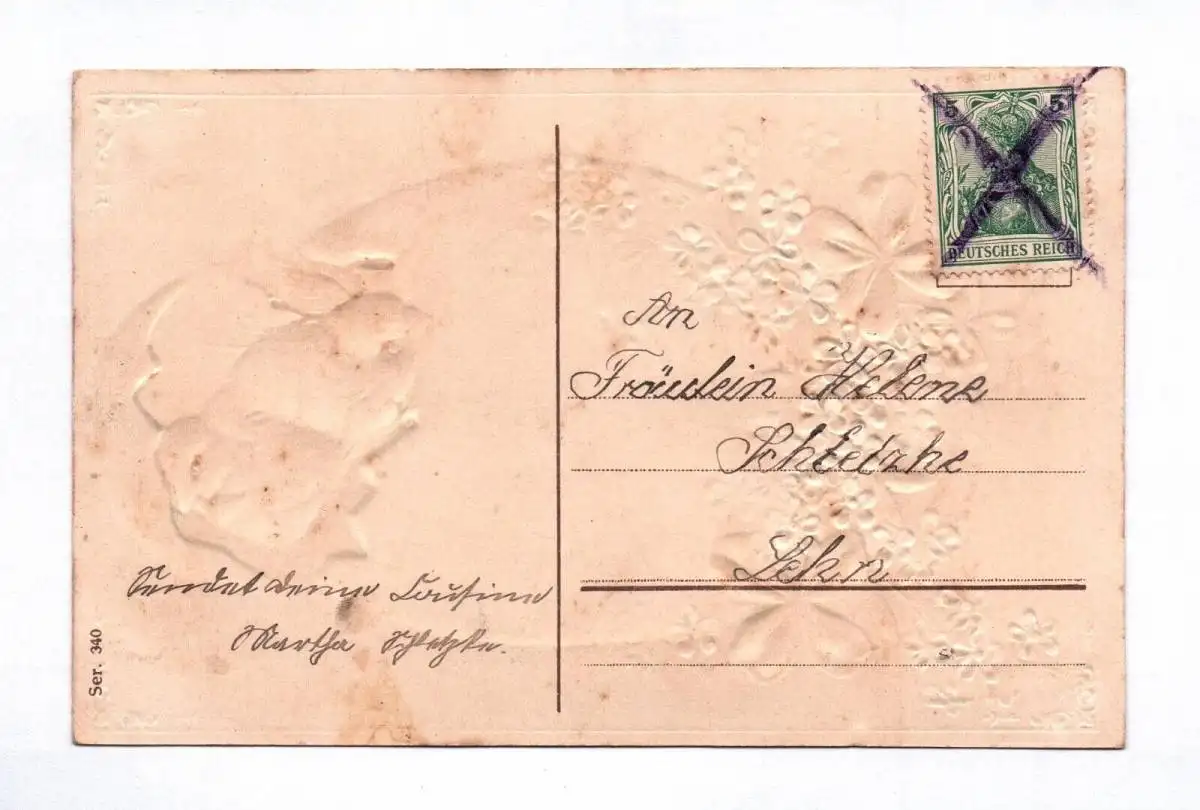 5 5
DEUTSCHES REICH
An
Fräulein Helene
Schletzke
Sehn
Sendet Deine Cousine
Martha Schletzke.
Ser. 340